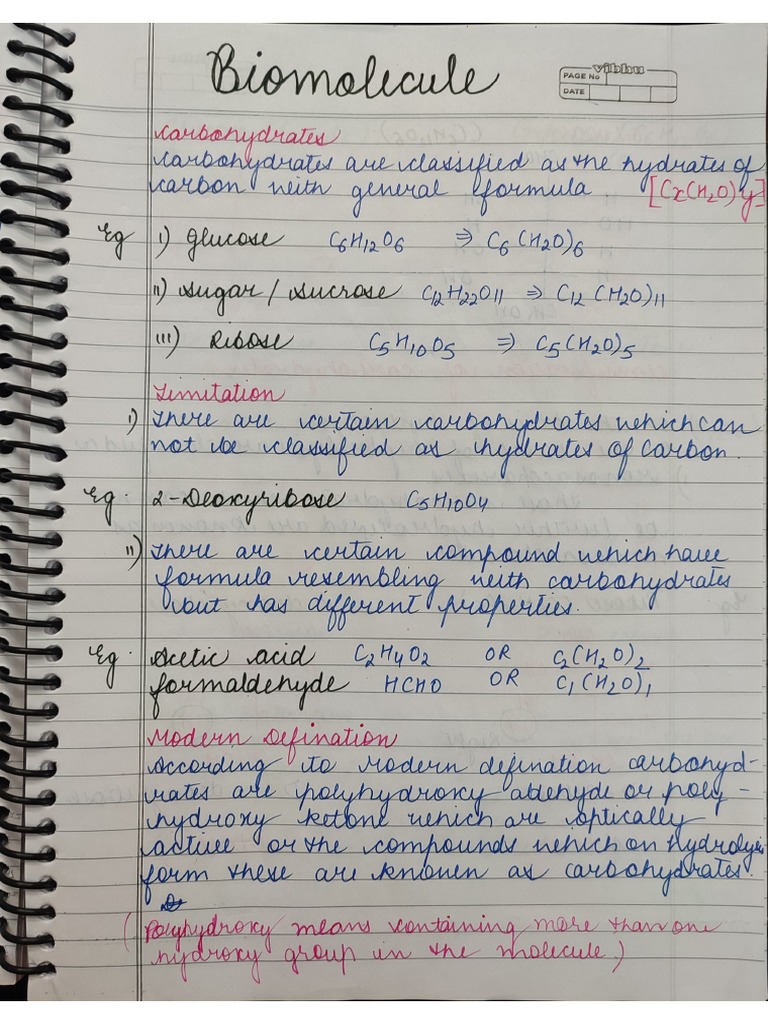 Biomolecule
vibhu
PAGE No
DATE
Carbohydrates
Carbohydrates are classified as the hydrates of
carbon with general formula [Cx(H2O)y]
Eg i) Glucose C6H12O6 ⇒ C6(H2O)6
ii) Sugar / Sucrose C12H22O11 ⇒ C12(H2O)11
iii) Ribose C5H10O5 ⇒ C5(H2O)5
Limitation
i) There are certain carbohydrates which can
not be classified as hydrates of carbon.
Eg. 2-Deoxyribose C5H10O4
ii) There are certain compound which have
formula resembling with carbohydrates
but has different properties.
Eg. Acetic acid C2H4O2 OR C2(H2O)2
formaldehyde HCHO OR C1(H2O)1
Modern Defination
According to modern defination carbohyd-
rates are polyhydroxy aldehyde or poly-
hydroxy ketone which are optically
active or the compounds which on hydrolysis
form these are known as carbohydrates.
(Polyhydroxy means containing more than one
hydroxy group in the molecule.)